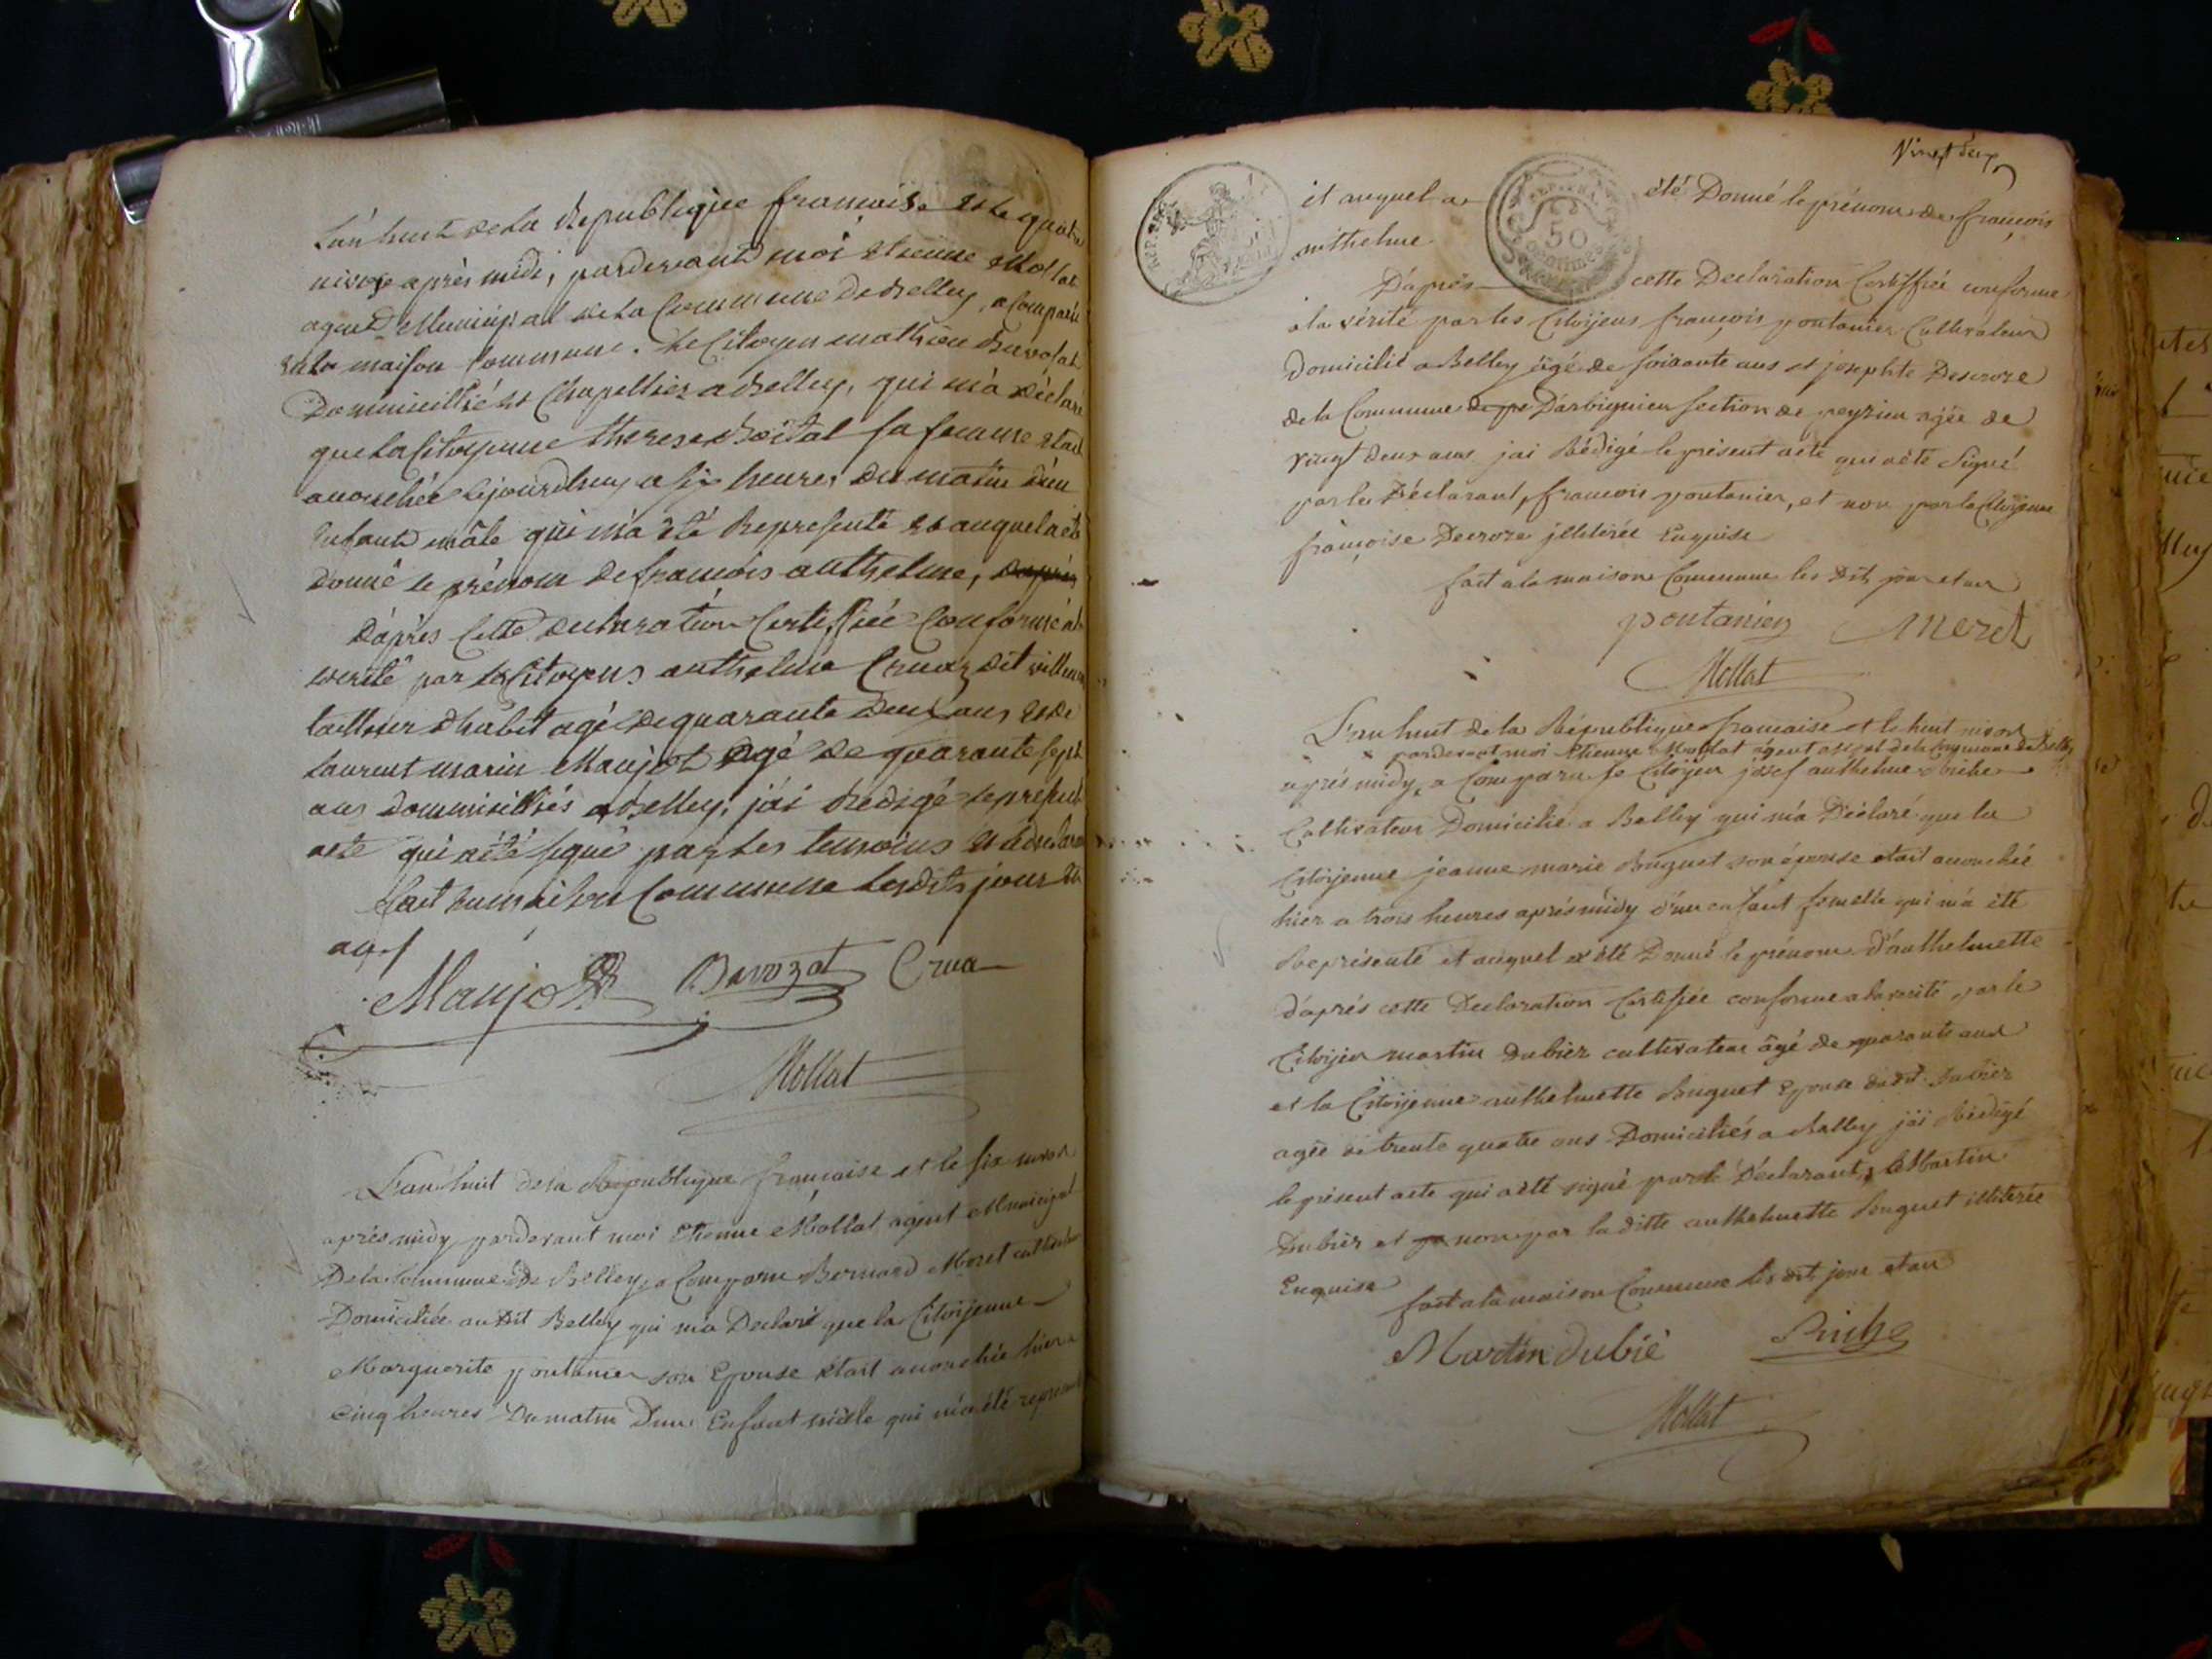 L'an huit de la Republique francaise et le quatre
nivose après midi, pardevant moi etienne Mollat
agent Municipal de la Commune de Belley, a Comparu
en la maison Commune. Le Citoyen mathieu Bavozat
Dommicillié et Chapellier a Belley, qui m'a déclaré
que la Citoyenne therese Boital sa femme etait
accouchée cejourdhuy a six heures du matin d'un
Enfant mâle qui m'a été Representé et auquel a été
donné le prénom de francois anthelme, d'après
D'après Cette declaration Certiffiée Conforme a la
verité par les Citoyens anthelme Cruaz dit
tailleur d'habit agé de quarante deux ans et de
Laurent marin Maujot agé de quarante sept
ans dommicilliés a Belley, j'ai Redigé le present
acte qui a été signé par les temoins et le declarant
fait en maison Commune lesdits jour et
an
Maujot Bavozat Crua
Mollat
L'an huit de la Republique française et le six nivos
après midy pardevant moi Etienne Mollat agent Municipal
De la Commune de Belley, a Comparu Bernard Meret cultivateur
Domicilié au dit Belley qui m'a Declaré que la Citoyenne
Marguerite pontanier son Epouse etait accouchée hier a
cinq heures Du matin D'un Enfant mâle qui m'a été representé
Vingt deux
REP. FRA.
50
centimes
et auquel a été Donné le prénom de françois
anthelme
D'après cette Declaration Certiffiée conforme
a la vérité par les Citoyens françois pontanier Cultivateur
Domicilié a Belley âgé de soixante ans et josephte Decroze
de la Commune de pe D'arbignieu section de peyzieu agée de
vingt deux ans j'ai Rédigé le présent acte qui a été Signé
par le Déclarant, francois pontanier, et non par la Citoyenne
françoise Decroze jlliterée Enquise
fait a la maison Commune les dit jour et an
pontanier Meret
Mollat
L'an huit de la République francaise et le huit nivos
pardevant moi Etienne Mollat agent de la Commune de Belley
après midy, a Comparu le Citoyen josef anthelme Briche
Cultivateur Domicilié a Belley qui m'a Déclaré que la
Citoyenne jeanne marie Buguet son épouse etait accouchée
hier a trois heures après midy d'un enfant femelle qui m'a été
Représenté et auquel a été Donné le prénom d'anthelmette
d'après cette Declaration Certifiée conforme a la verité par le
Citoyen martin Dubiez cultivateur âgé de quarante ans
et la Citoyenne anthelmette Buguet Epouse dudit Dubiez
agée de trente quatre ans Domiciliés a Belley j'ai Rédigé
le présent acte qui a été signé par le Déclarant, le Martin
Dubiez et non par la ditte anthelmette Buguet illiterée
Enquise
fait a la maison Commune les dit jour et an
Martin dubié Briche
Mollat